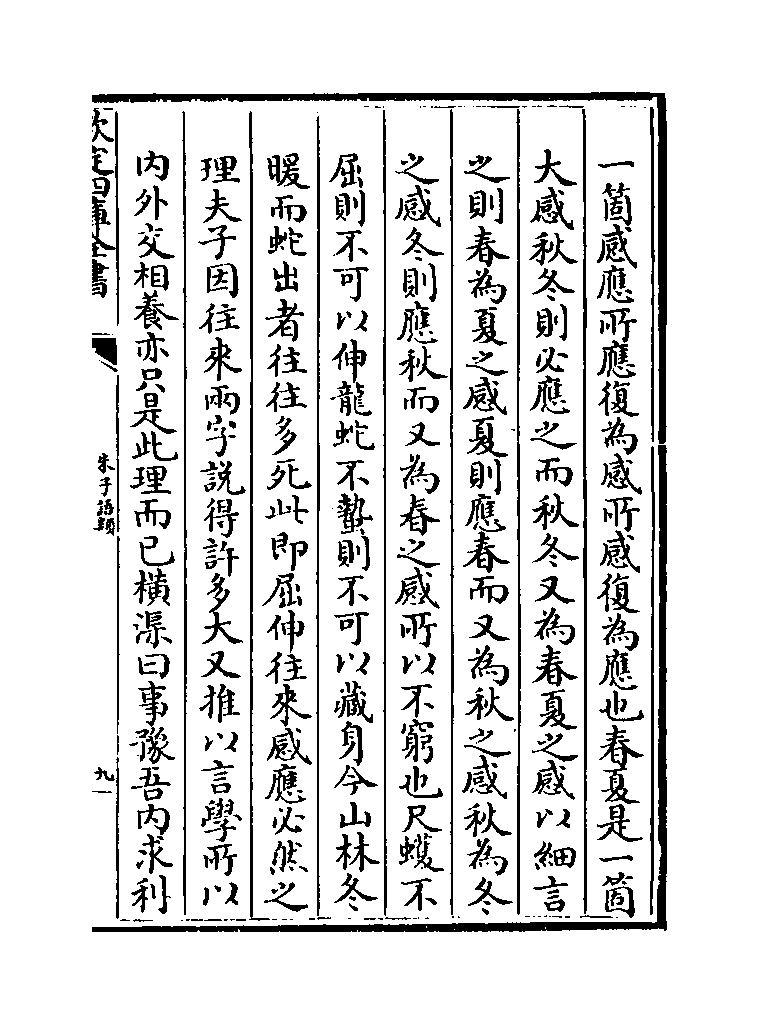 一箇感應所應復為感所感復為應也春夏是一箇
大感秋冬則必應之而秋冬又為春夏之感以細言
之則春為夏之感夏則應春而又為秋之感秋為冬
之感冬則應秋而又為春之感所以不窮也尺蠖不
屈則不可以伸龍蛇不蟄則不可以藏身今山林冬
暖而蛇出者往往多死此即屈伸往來感應必然之
理夫子因往來兩字說得許多大又推以言學所以
内外交相養亦只是此理而已横渠曰事豫吾内求利
欽定四庫全書
朱子語類
九一